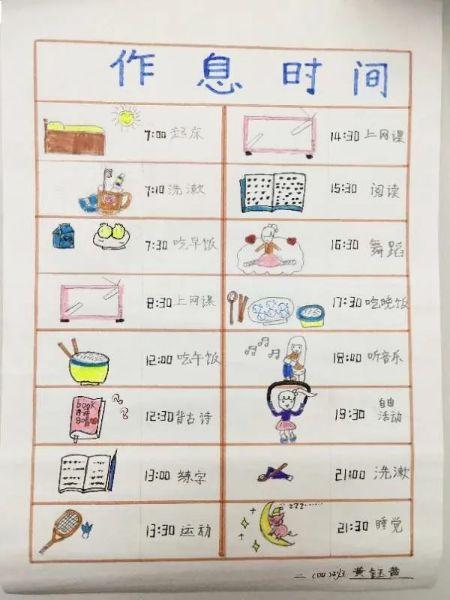 作息时间
7:00 起床
7:10 洗漱
7:30 吃早饭
8:30 上网课
12:00 吃午饭
book
12:30 背古诗
13:00 练字
13:30 运动
14:30 上网课
15:30 阅读
16:30 舞蹈
17:30 吃晚饭
18:00 听音乐
19:30 自由
活动
21:00 洗漱
zzz
21:30 睡觉
二 班 黄